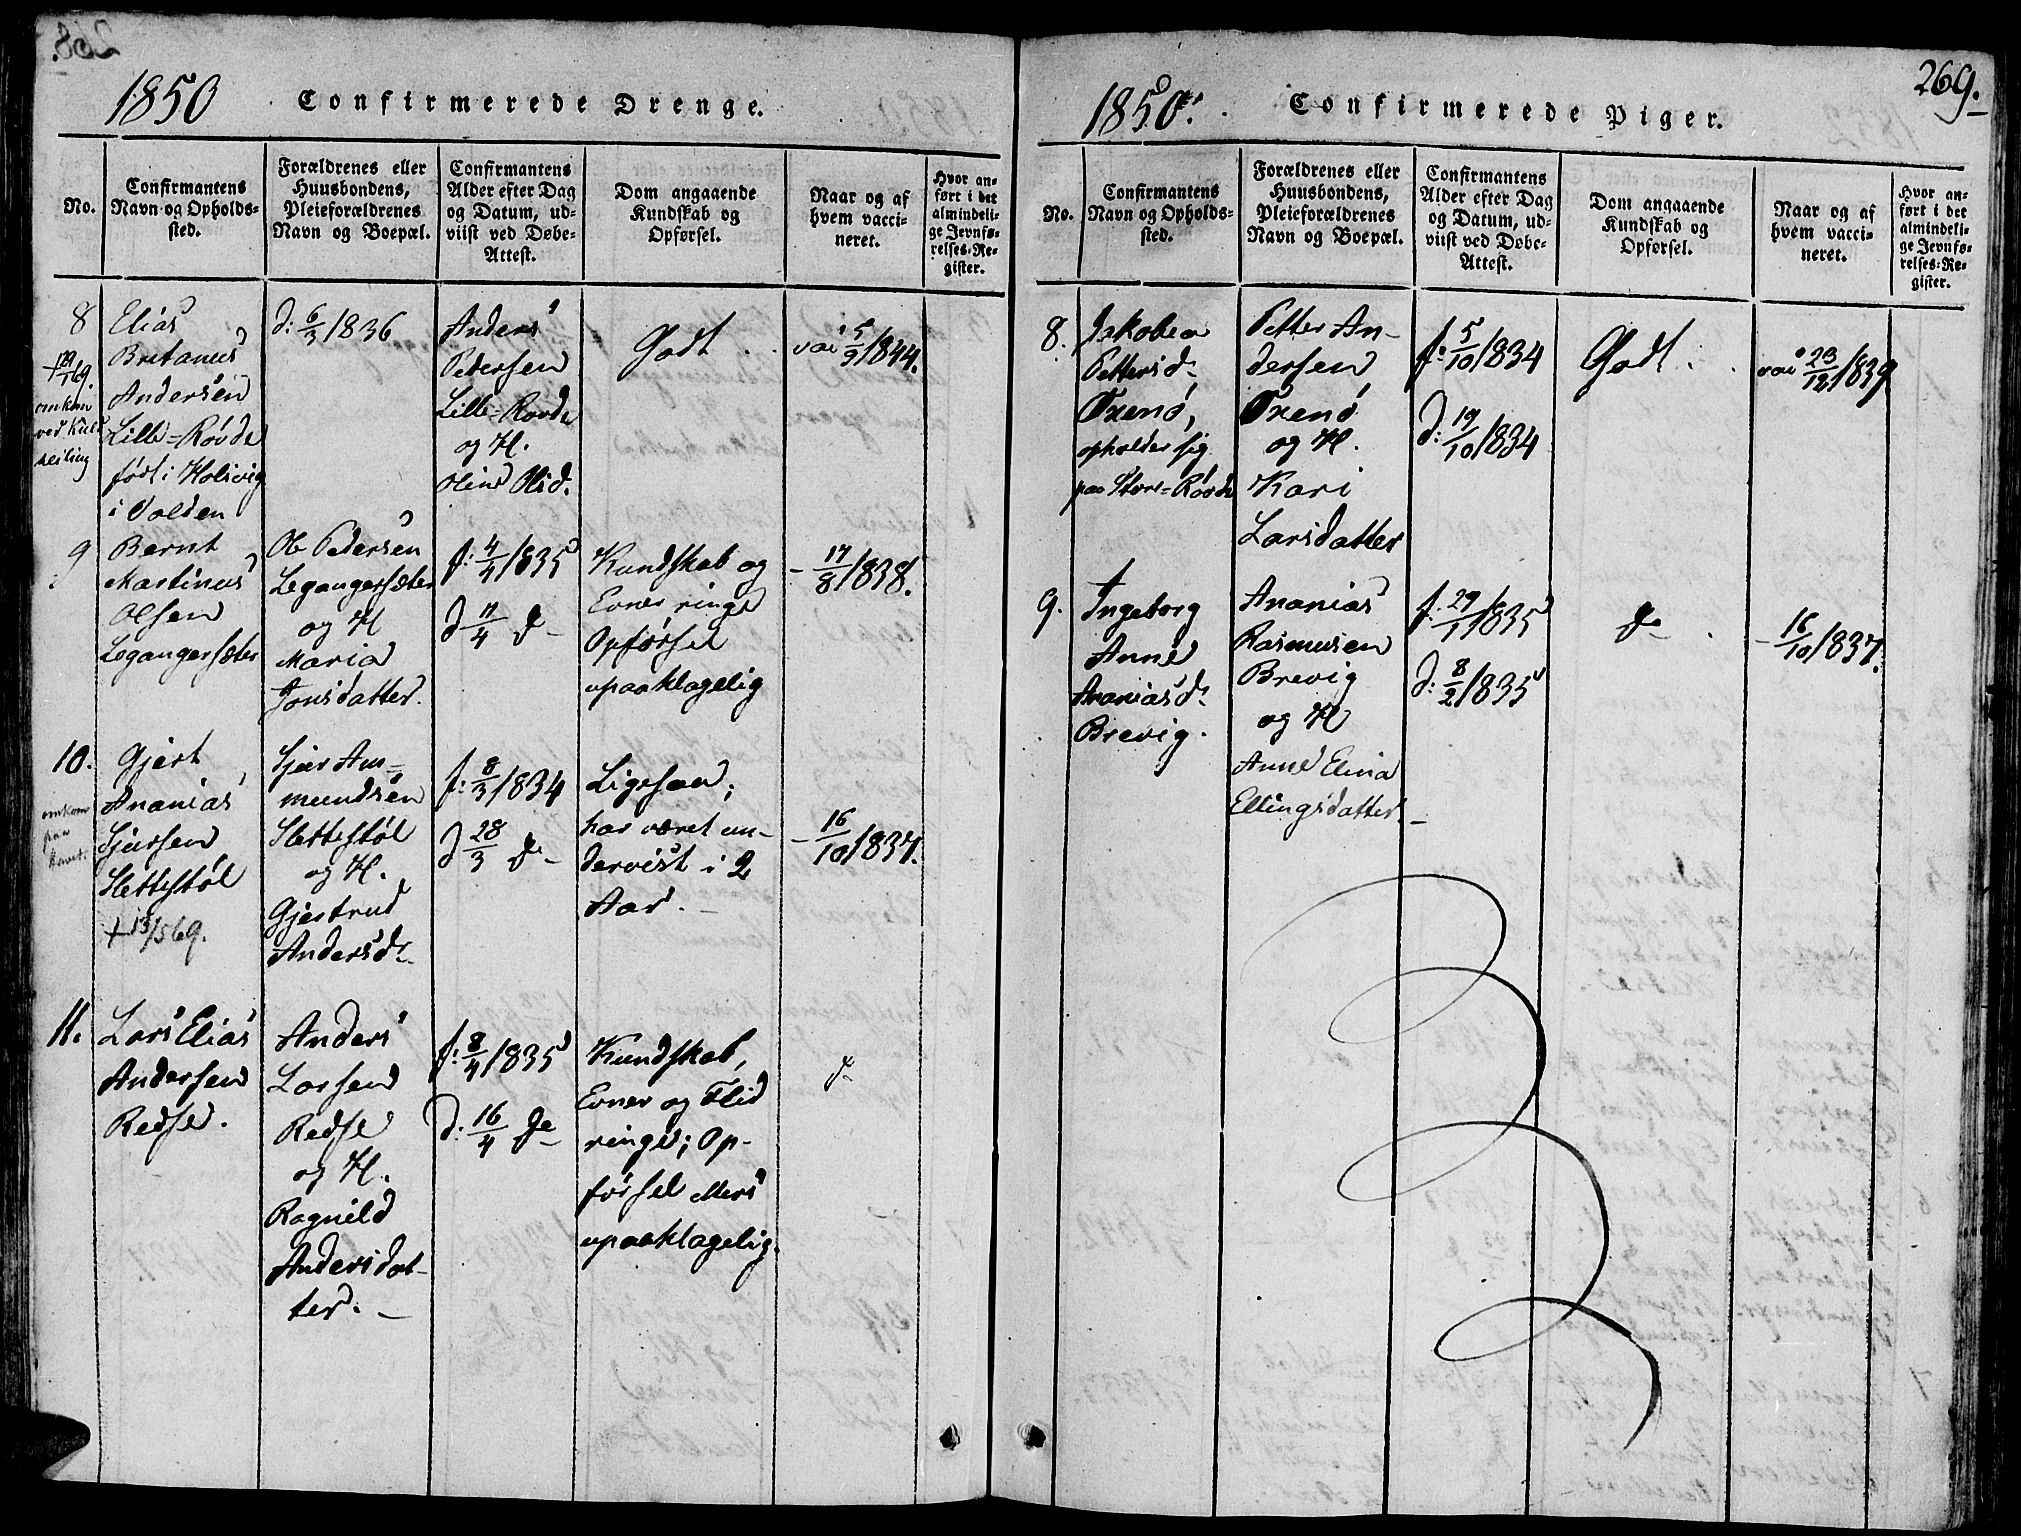 1850 Confirmerede Drenge.
No.
Confirmantens
Navn og Opholds-
sted.
Forældrenes eller
Huusbondens,
Pleieforældrenes
Navn og Boepæl.
Confirmantens
Alder efter Dag
og Datum, ud-
viist ved Døbe-
Attest.
Dom angaaende
Kundskab og
Opførsel.
Naar og af
hvem vacci-
neret.
Hvor an-
ført i det
almindeli-
ge Jevnfø-
relses-Re-
gister.
8
omkom
ved
seiling
Elias
Bretanus
Andersen
Lille-Rovde
født i Holsvig
i Volden
d: 6/3/1836
Anders
Pedersen
Lille-Rovde
og H.
Oline Olsd.
Godt
vac 5/9/1844.
9
Bernt
Martinus
Olsen
Legangersæter
Ole Pedersen
Legangersæter
og H
Maria
Jonsdatter.
f: 4/4/1835
d 17/4 do
Kundskab og
Evner ringe
Opførsel
upaaklagelig
- 17/8/1838.
10.
omkom
paa
havet.
Gjert
Ananias
Sjursen
Slettestøl
+13/569.
Sjur Am-
mundsen
Slettestøl
og H.
Gjertrud
Andersdr
f: 8/3/1834
d 28/3 do
Ligesaa;
har været un-
dervist i 2
Aar.
- 16/10/1837.
11.
Lars Elias
Andersen
Redse.
Anders
Larsen
Redse
og H.
Ragnild
Andersdat-
ter.
f: 8/4/1835
d: 16/4 do
Kundskab,
Evner og Flid
ringe; Op-
førsel ellers
upaaklagelig.
do
269.
1850. Confirmerede Piger.
No.
Confirmantens
Navn og Opholds-
sted.
Forældrenes eller
Huusbondens,
Pleieforældrenes
Navn og Boepæl.
Confirmantens
Alder efter Dag
og Datum, ud-
viist ved Døbe-
Attest.
Dom angaaende
Kundskab og
Opførsel.
Naar og af
hvem vacci-
neret.
Hvor an-
ført i det
almindeli-
ge Jevnfø-
relses-Re-
gister.
8.
Jakobea
Pettersd.
Oxenö,
opholder sig
paa Store-Rovde
Petter An-
dersen
Oxenö
og H.
Kari
Larsdatter
f: 5/10/1834
d: 19/10/1834
Godt
vac 23/12/1839
9.
Ingeborg
Anne
Ananiasdr
Brevig.
Ananias
Rasmusen
Brevig
og H
Anne Elina
Ellingsdatter
f: 29/1/1835
d: 8/2/1835
do
- 16/10/1837.